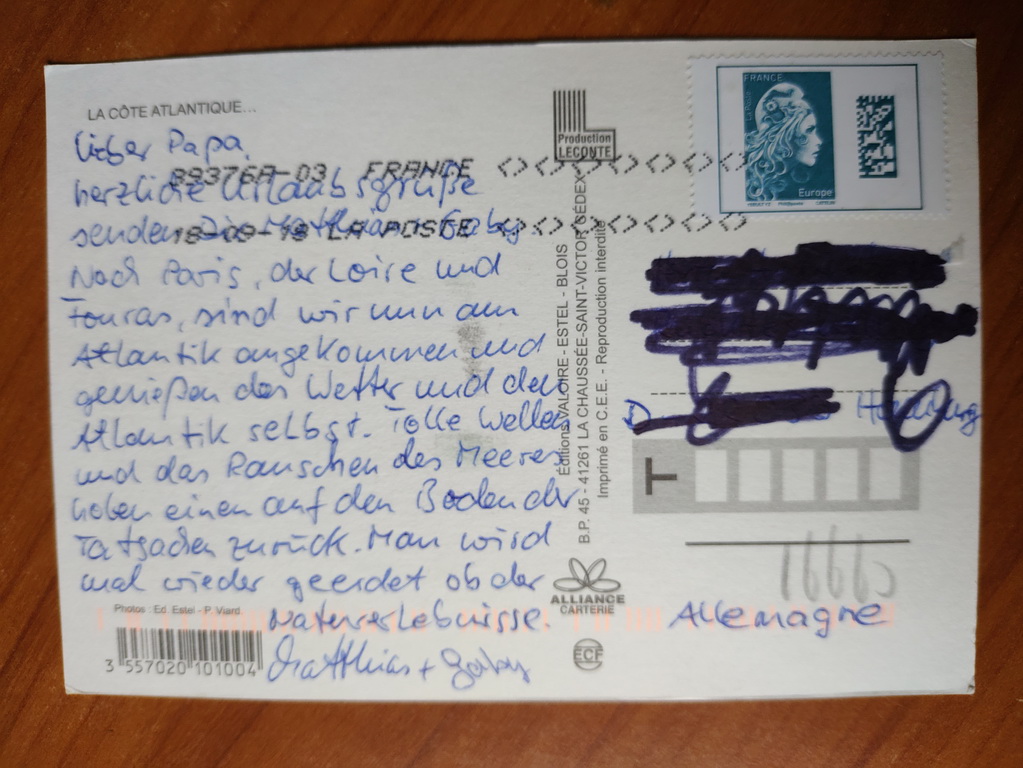 LA CÔTE ATLANTIQUE...
Lieber Papa,
herzliche Urlaubsgrüße
senden Dir Matthias + Gaby
Nach Paris, der Loire und
Fouras, sind wir nun am
Atlantik angekommen und
genießen das Wetter und den
Atlantik selbst. Tolle Wellen
und das Rauschen des Meeres
holen einen auf den Boden der
Tatsachen zurück. Man wird
mal wieder geerdet ob der
Naturerlebnisse.
Matthias + Gaby
89376A-03 FRANCE
18-09-19 LA POSTE
Photos : Ed. Estel - P. Viard.
3 557020 101004
Production
LECONTE
Éditions VALOIRE - ESTEL - BLOIS
B.P. 45 - 41261 LA CHAUSSÉE-SAINT-VICTOR CEDEX
Imprimé en C.E.E. - Reproduction interdite
ALLIANCE
CARTERIE
ECF
FRANCE
La Poste
Europe
D
Hamburg
T
16665
Allemagne